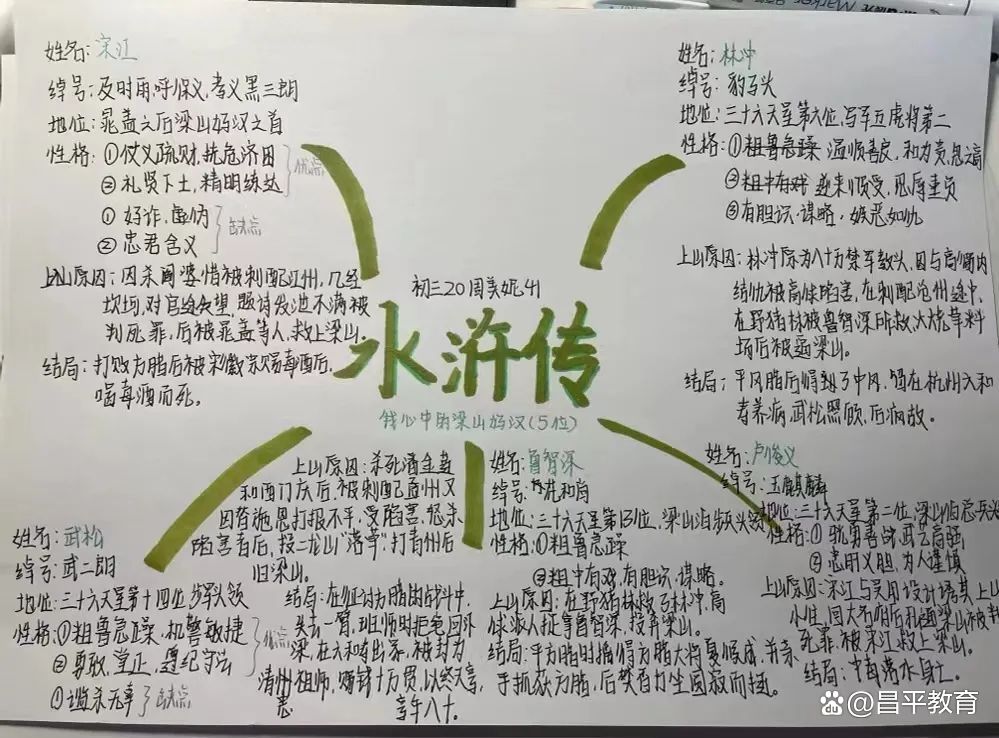 姓名:宋江
绰号:及时雨,呼保义,孝义黑三朗
地位:晁盖之后梁山好汉之首
性格:①仗义疏财,扶危济困
②礼贤下士,精明练达
优点
①奸诈,虚伪
②忠君含义
缺点
上山原因:因杀阎婆惜被刺配江州,几经
坎坷,对官途失望,题诗发泄不满被
判死罪,后被晁盖等人,救上梁山。
结局:打败方腊后被宋徽宗赐毒酒后,
喝毒酒而死。
姓名:林冲
绰号:豹子头
地位:三十六天罡第六位,马军五虎将第二
性格:①粗鲁急躁 温顺善良,和为贵,息
②粗中有戏 逆来顺受,忍辱重负
③有胆识,谋略,嫉恶如仇
上山原因:林冲原为八十万禁军教头,因与高衙内
结仇被高俅陷害,在刺配沧州途中,
在野猪林被鲁智深所救,火烧草料
场后被逼梁山。
结局:平风腊后得到了中风,留在杭州六和
寺养病,武松照顾,后病故。
初三20周美妮41
水浒传
我心中的梁山好汉(5位)
姓名:武松
绰号:武二朗
地位:三十六天罡第十四位 步军头领
性格:①粗鲁急躁,机警敏捷
②勇敢,堂正,遵纪守法
优点
①滥杀无辜
缺点
上山原因:杀死潘金莲
和西门庆后,被刺配孟州又
因替施恩打报不平,受陷害,怒杀
陷害者后,投二龙山“落草”.打青州后
归梁山。
结局:在征讨方腊的战斗中,
失去一臂,班师时拒绝回
梁,在六和寺出家,被封为
清州祖师,赐钱十万贯,以终天
享年八十。
姓名:鲁智深
绰号:花和尚
地位:三十六天罡第13位,梁山泊步头领
性格:①粗鲁急躁
②粗中有戏,有胆识,谋略。
上山原因:在野猪林救了林冲,高
俅派人捉拿鲁智深,投奔梁山。
结局:平方腊时擒得方腊大将夏侯成,并亲
手抓获方腊,后焚香打坐圆寂而
姓名:卢俊义
绰号:玉麒麟
地位:三十六天罡第二位,梁山泊总
性格:①骁勇善战,武艺高强
②忠肝义胆,为人谨慎
上山原因:宋江与吴用设计诱其上山
死罪,被宋江救上梁山。
结局:中毒落水身亡。
@昌平教育